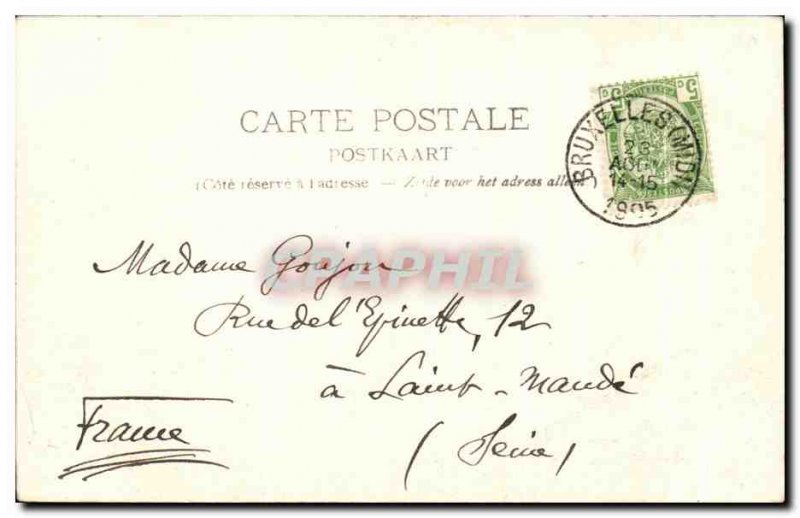 CARTE POSTALE
POSTKAART
(Côté réservé à l'adresse — Zijde voor het adress alleen)
5 5
BRUXELLES (MIDI)
23
AOUT
14-15
1905
EPAPHIL
Madame Goujon
Rue de l'Epinette, 12
à Saint-Mandé
(Seine)
France